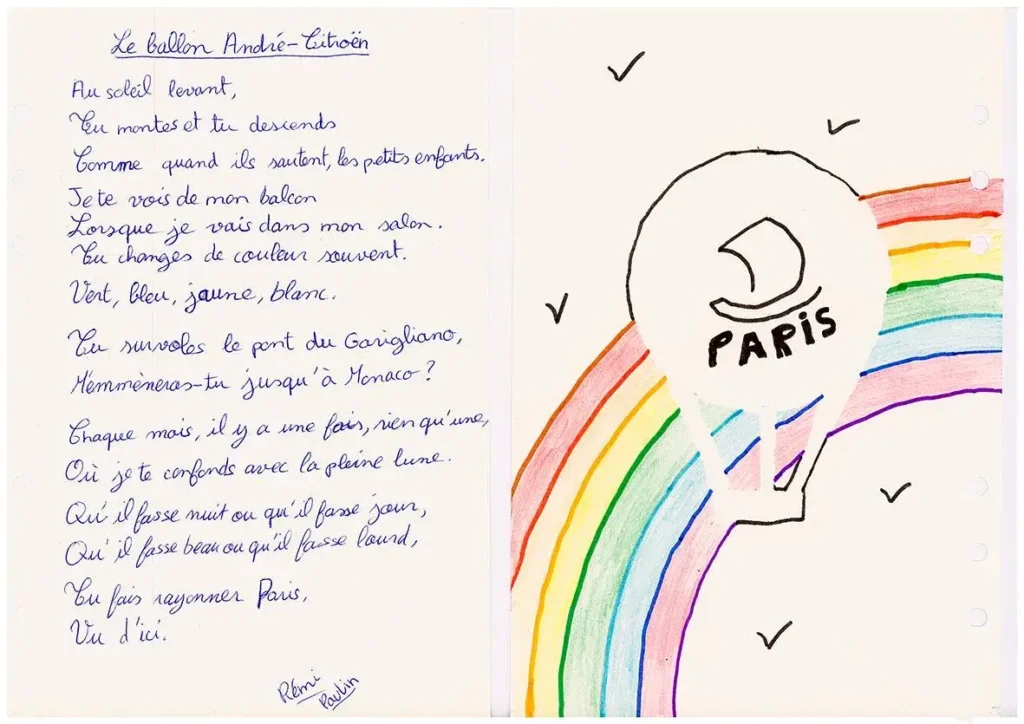 Le ballon André-Citroën
Au soleil levant,
Tu montes et tu descends
Comme quand ils sautent, les petits enfants.
Je te vois de mon balcon
Lorsque je vais dans mon salon.
Tu changes de couleur souvent.
Vert, bleu, jaune, blanc.
Tu survoles le pont du Garigliano,
M'emmèneras-tu jusqu'à Monaco ?
Chaque mois, il y a une fois, rien qu'une,
Où je te confonds avec la pleine lune.
Qu'il fasse nuit ou qu'il fasse jour,
Qu'il fasse beau ou qu'il fasse lourd,
Tu fais rayonner Paris,
Vu d'ici.
Rémi
Paulin
PARIS